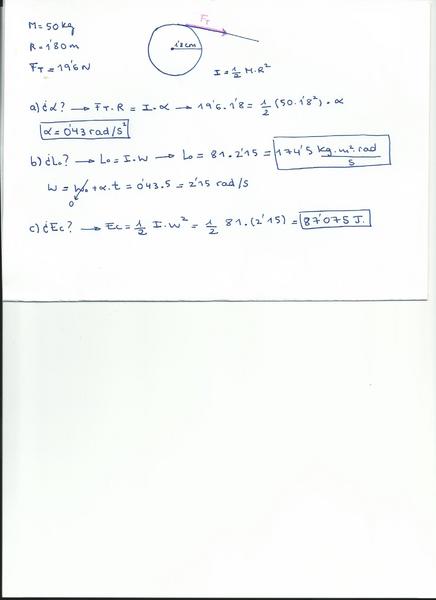 M = 50 kg
R = 1'80 m
F_T = 19'6 N
F_T
1'8 cm
I = 1/2 M·R²
a) ¿α? → F_T·R = I·α → 19'6·1'8 = 1/2 (50·1'8²)·α
α = 0'43 rad/s²
b) ¿L₀? → L₀ = I·W → L₀ = 81·2'15 = 174'5 kg·m²·rad/s
W = W₀ + α·t = 0'43·5 = 2'15 rad/s
0
c) ¿Ec? → Ec = 1/2 I·W² = 1/2 81·(2'15) = 87'075 J.